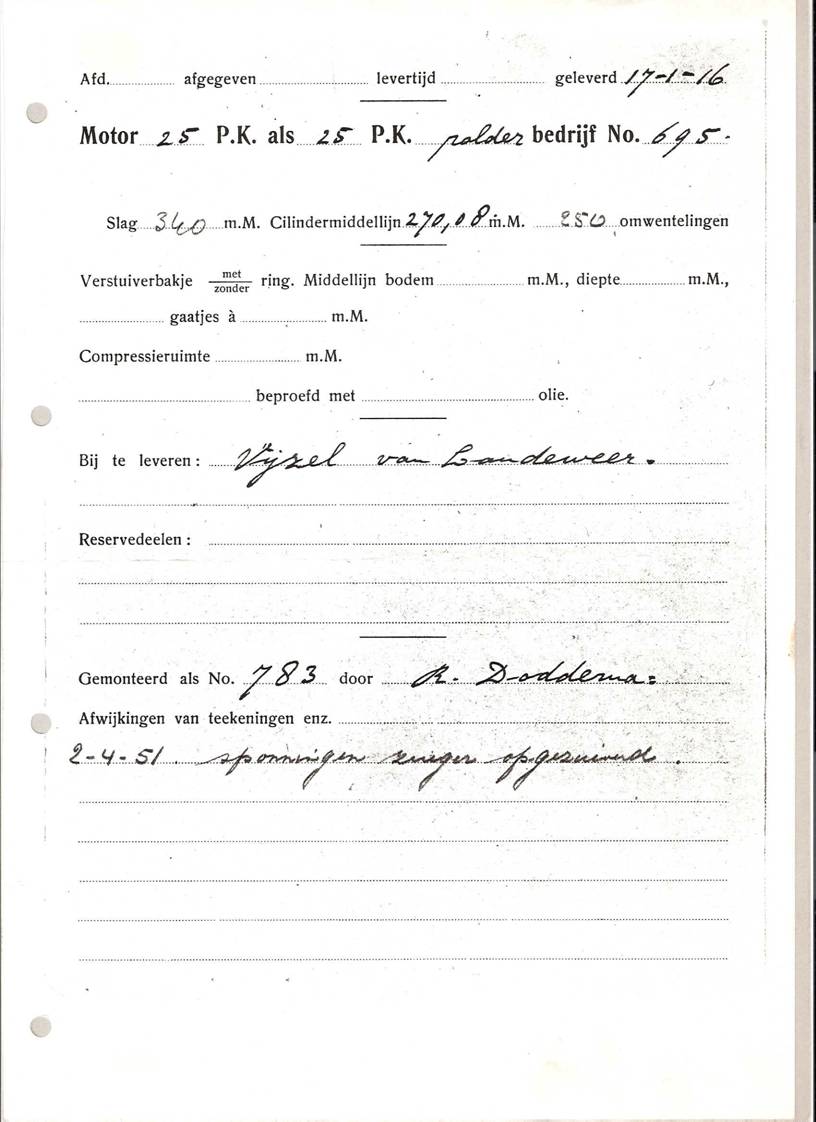 Afd. afgegeven levertijd geleverd 17-1-16
Motor 25 P.K. als 25 P.K. polder bedrijf No. 695.
Slag 340 m.M. Cilindermiddellijn 270,08 m.M. 250 omwentelingen
Verstuiverbakje met/zonder ring. Middellijn bodem m.M., diepte m.M.,
gaatjes à m.M.
Compressieruimte m.M.
beproefd met olie.
Bij te leveren: Vijzel van Landeweer.
Reservedeelen:
Gemonteerd als No. 783 door R. Doddema
Afwijkingen van teekeningen enz.
2-4-51. sponningen zuiger opgezuiverd.